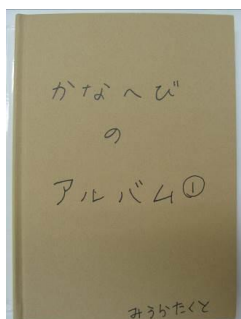 かなへび
の
アルバム①
みうらたくと